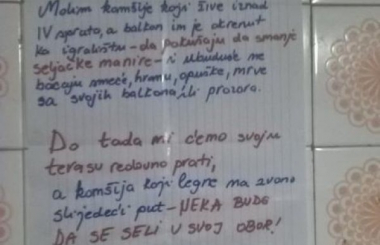 Molim komšije koji žive iznad
IV sprata, a balkon im je okrenut
ka igralištu - da pokušaju da smanje
seljačke manire - i ubuduće ne
bacaju smeće, hranu, opuške, mrve
sa svojih balkona ili prozora.
Do tada mi ćemo svoju
terasu redovno prati,
a komšija koji legne na zvono
slijedeći put - NEKA BUDE
DA SE SELI U SVOJ OBOR!